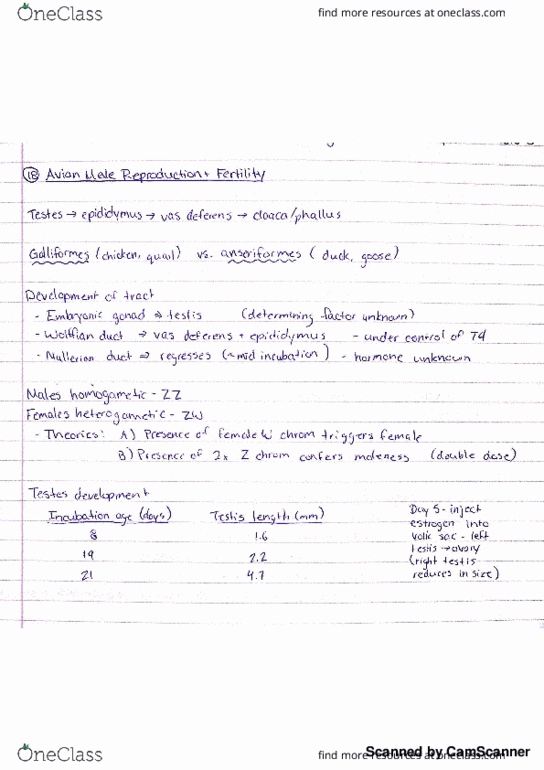 OneClass find more resources at oneclass.com
18 Avian Male Reproduction + Fertility
Testes → epididymus → vas deferens → cloaca/phallus
Galliformes (chicken, quail) vs. anseriformes (duck, goose)
Development of tract
- Embryonic gonad → testis (determining factor unknown)
- Wolffian duct → vas deferens + epididymus - under control of T4
- Mullerian duct ⇒ regresses (~mid incubation) - hormone unknown
Males homogametic - ZZ
Females heterogametic - ZW
- Theories: A) Presence of female W chrom triggers female
B) Presence of 2x Z chrom confers maleness (double dose)
Testes development
Incubation age (days) Testis length (mm) Day 5 - inject
estrogen into
8 1.6 yolk sac - left
testis → ovary
19 2.2 (right testis
21 4.7 reduces in size)
OneClass find more resources at oneclass.com
Scanned by CamScanner